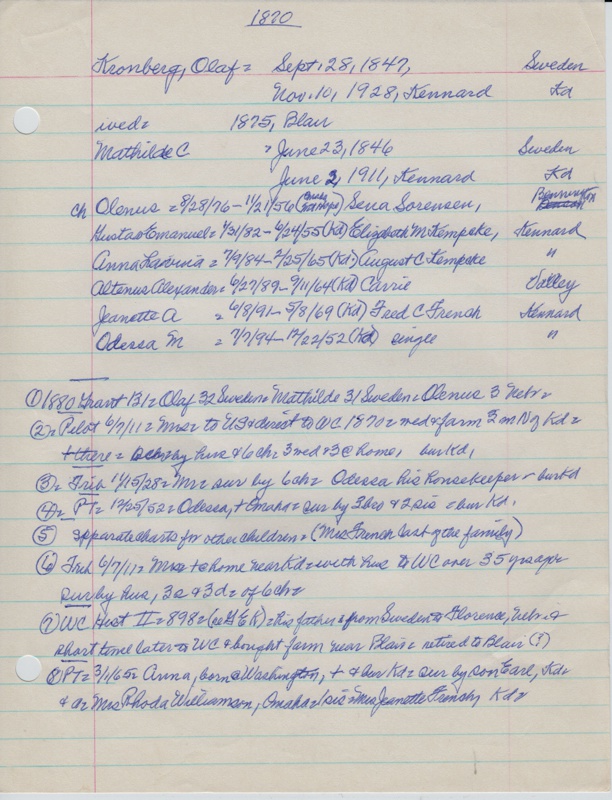 1870
Kronberg, Olaf = Sept. 28, 1847, Sweden
Nov. 10, 1928, Kennard Kd
wed = 1875, Blair
Mathilde C = June 23, 1846 Sweden
June 2, 1911, Kennard Kd
ch Olenus = 8/28/76 - 11/21/56 ( ) Sena Sorensen, Bennington
Gustav Emanuel = 1/31/82 - 6/24/55 (Kd) Elizabeth M Kempcke, Kennard
Anna = 7/9/84 - 2/25/65 (Kd) August C Kempcke "
Altenus Alexander = 6/27/89 - 9/11/64 (Kd) Carrie Valley
Jeanette A = 6/8/91 - 5/8/69 (Kd) Fred C French Kennard
Odessa M = 7/7/94 - 12/22/52 (Kd) single "
① 1880 Grant 131 = Olaf 32 Sweden = Mathilde 31 Sweden = Olenus 3 Nebr =
② = Pilot 6/7/11 = Mrs = to US & direct to WC 1870 = wed & farm 3 m N of Kd =
+ there = by hus & 6 ch = 3 wed & 3 @ home, bur Kd,
③ = 11/15/28 = Mr = sur by 6 ch = Odessa his housekeeper - bur Kd
④ = PT = 12/25/52 = Odessa, + Omaha = sur by 3 bro & 2 sis = bur Kd.
⑤ separate charts for other children = (Mrs French last of the family)
⑥ 6/7/11 = Mrs = + @ home near Kd = with hus to WC over 35 yrs ago =
sur by hus, 3 s & 3 d = of 6 ch =
⑦ WC Hist II = 898 = ( G E K) = his father = from Sweden to Florence, Nebr &
short time later to WC & bought farm near Blair = retired to Blair (?)
⑧ PT = 3/1/65 = Anna, born @ Washington, + & bur Kd = sur by son Earl, Kd =
& d = Mrs Rhoda Williamson, Omaha = 1 sis = Mrs Jeanette French, Kd =